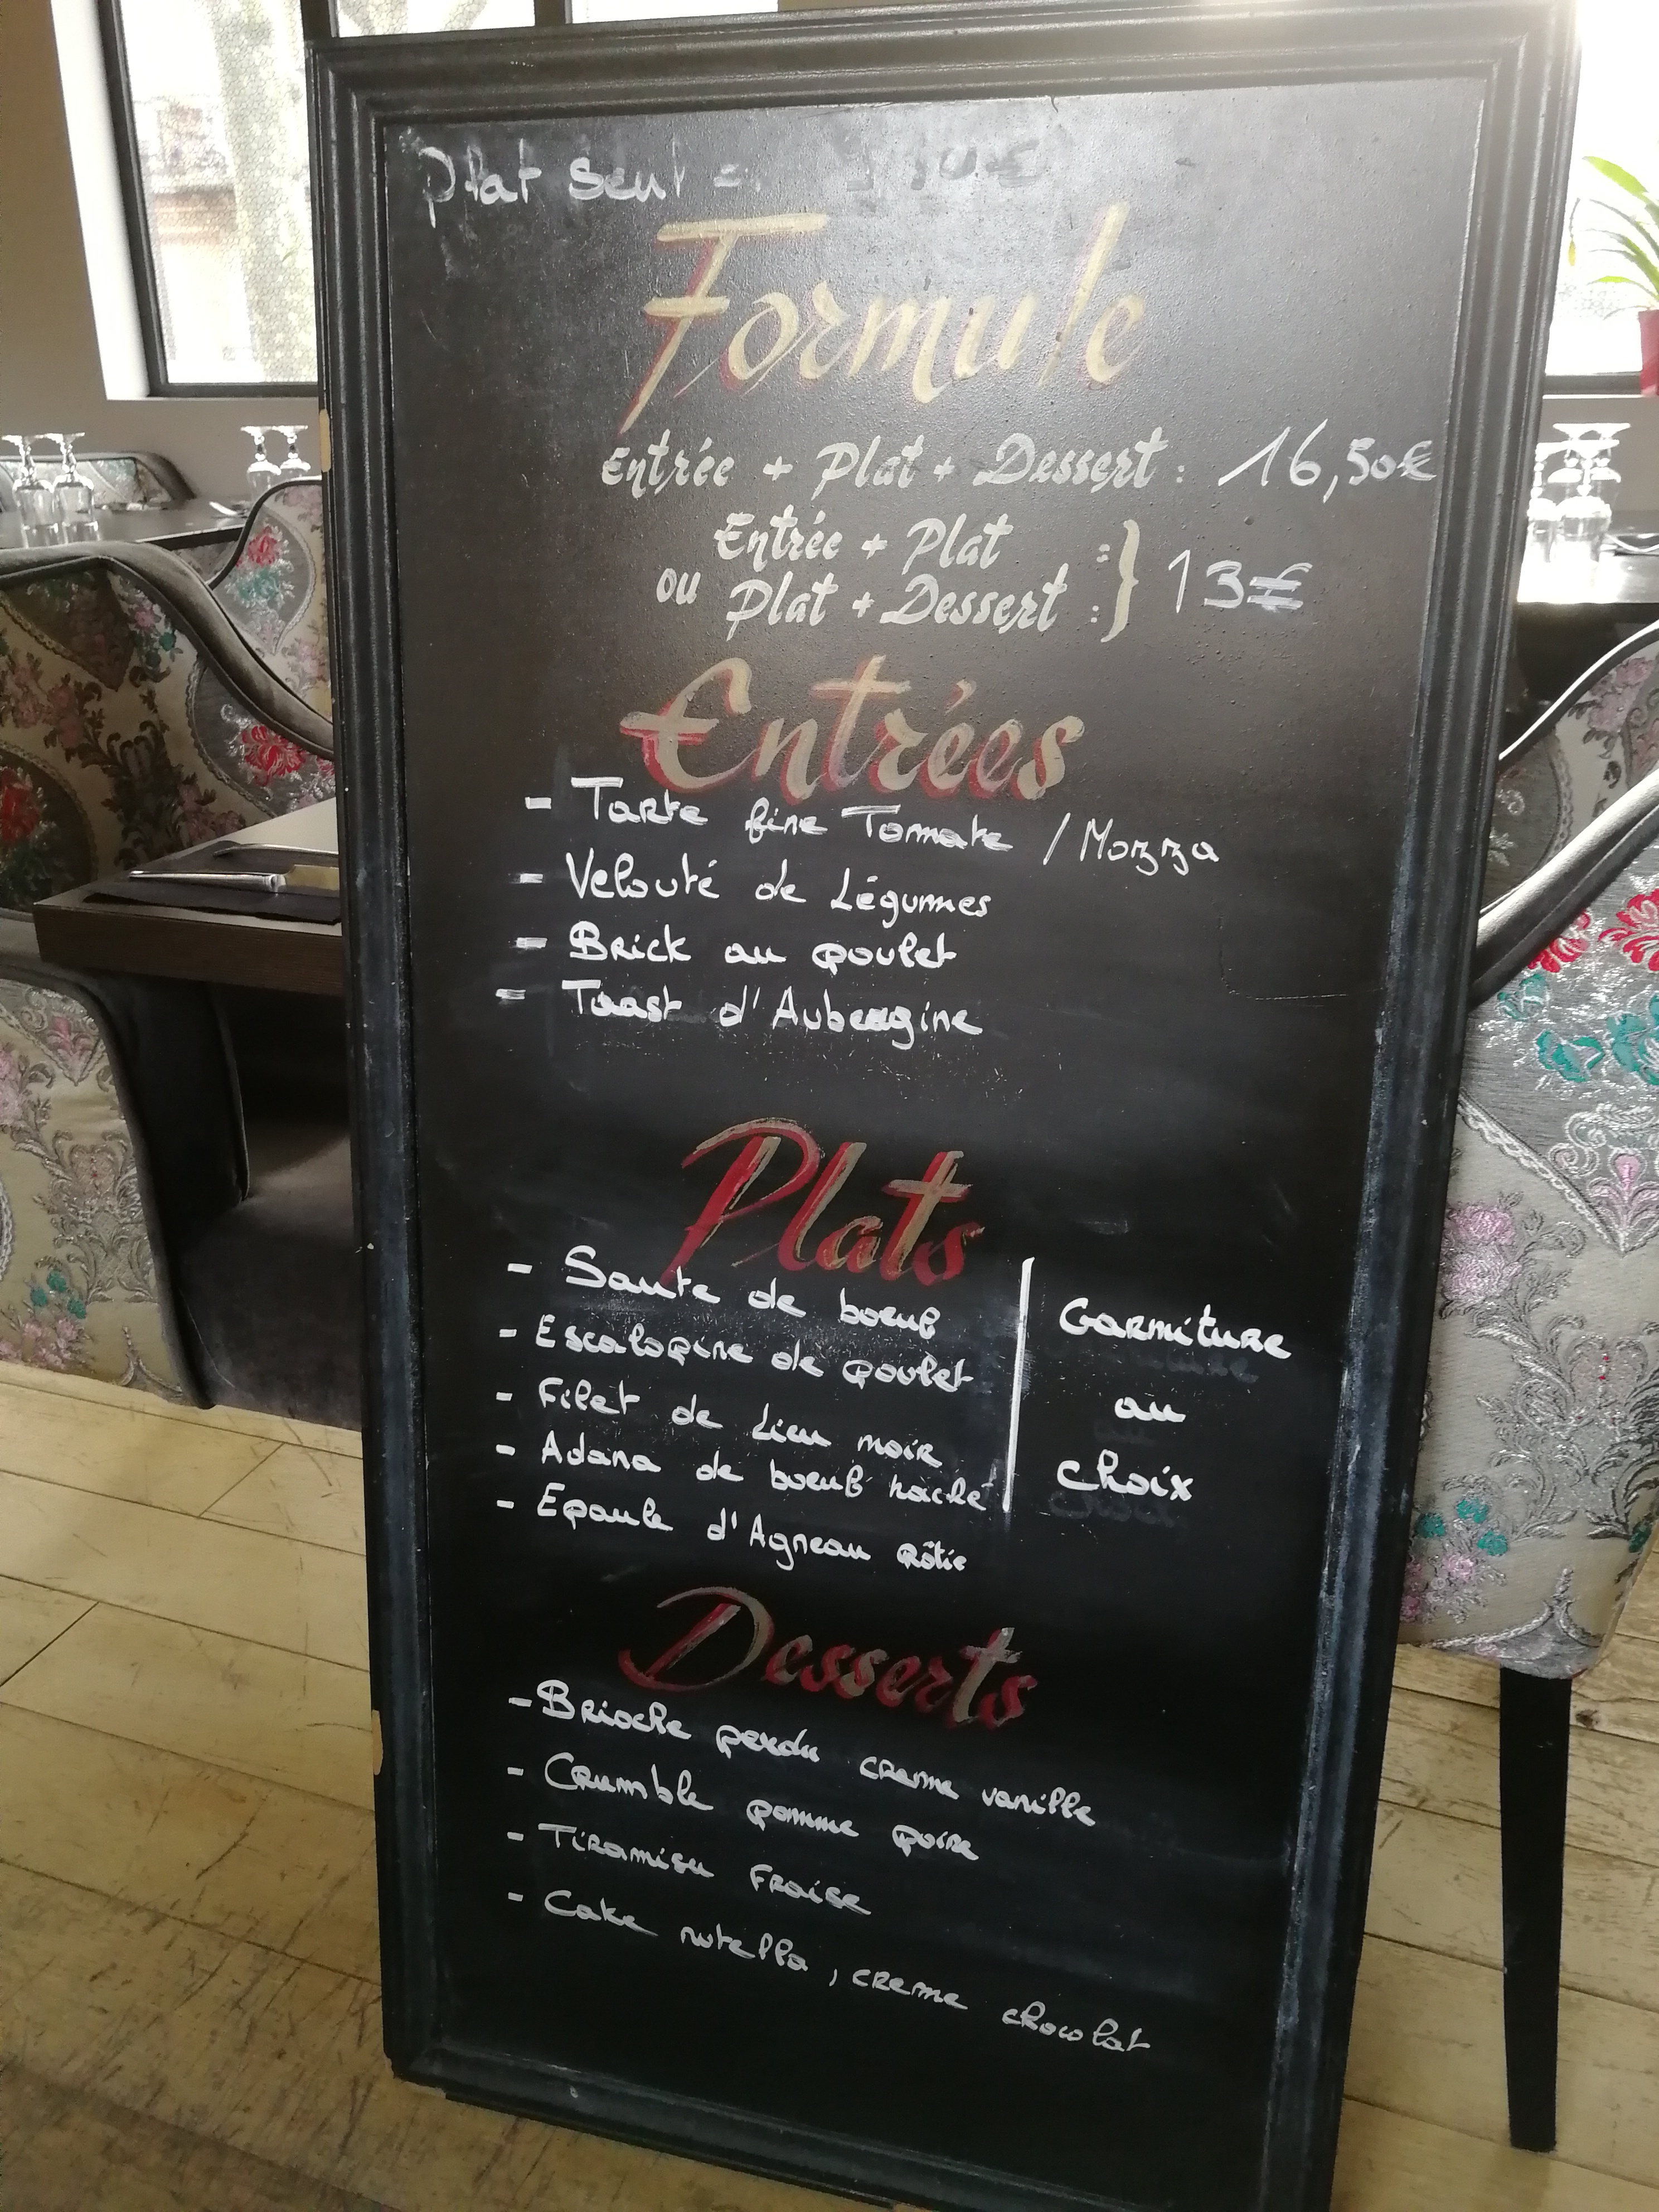 Plat seul =
Formule
Entrée + Plat + Dessert : 16,50€
Entrée + Plat :
ou Plat + Dessert : } 13€
Entrées
- Tarte fine Tomate / Mozza
- Velouté de Légumes
- Brick au poulet
- Toast d'Aubergine
Plats
- Saute de boeuf
- Escalopine de poulet
- Filet de Lieu noir
- Adana de boeuf haché
- Epaule d'Agneau rôtie
Garniture
au
choix
Desserts
- Brioche perdu creme vanille
- Crumble pomme poire
- Tiramisu Fraise
- Cake nutella, creme chocolat